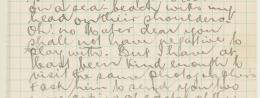 on a sea-beach with my
head on their shoulders!
Oh! no Walter dear you
shall not have negative to
play with. But I have at
least been kind enough to
visit the same photographers
& ask him to send you two